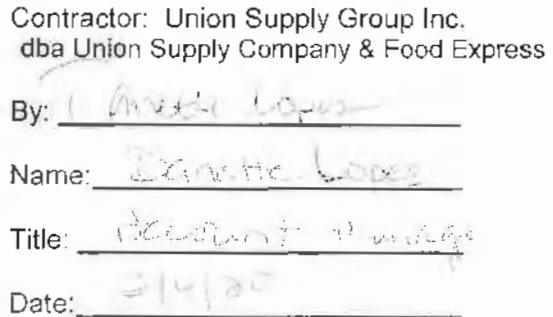 Contractor: Union Supply Group Inc.
dba Union Supply Company & Food Express
By:
Name: Danette Lopes
Title: Account Manager
Date: